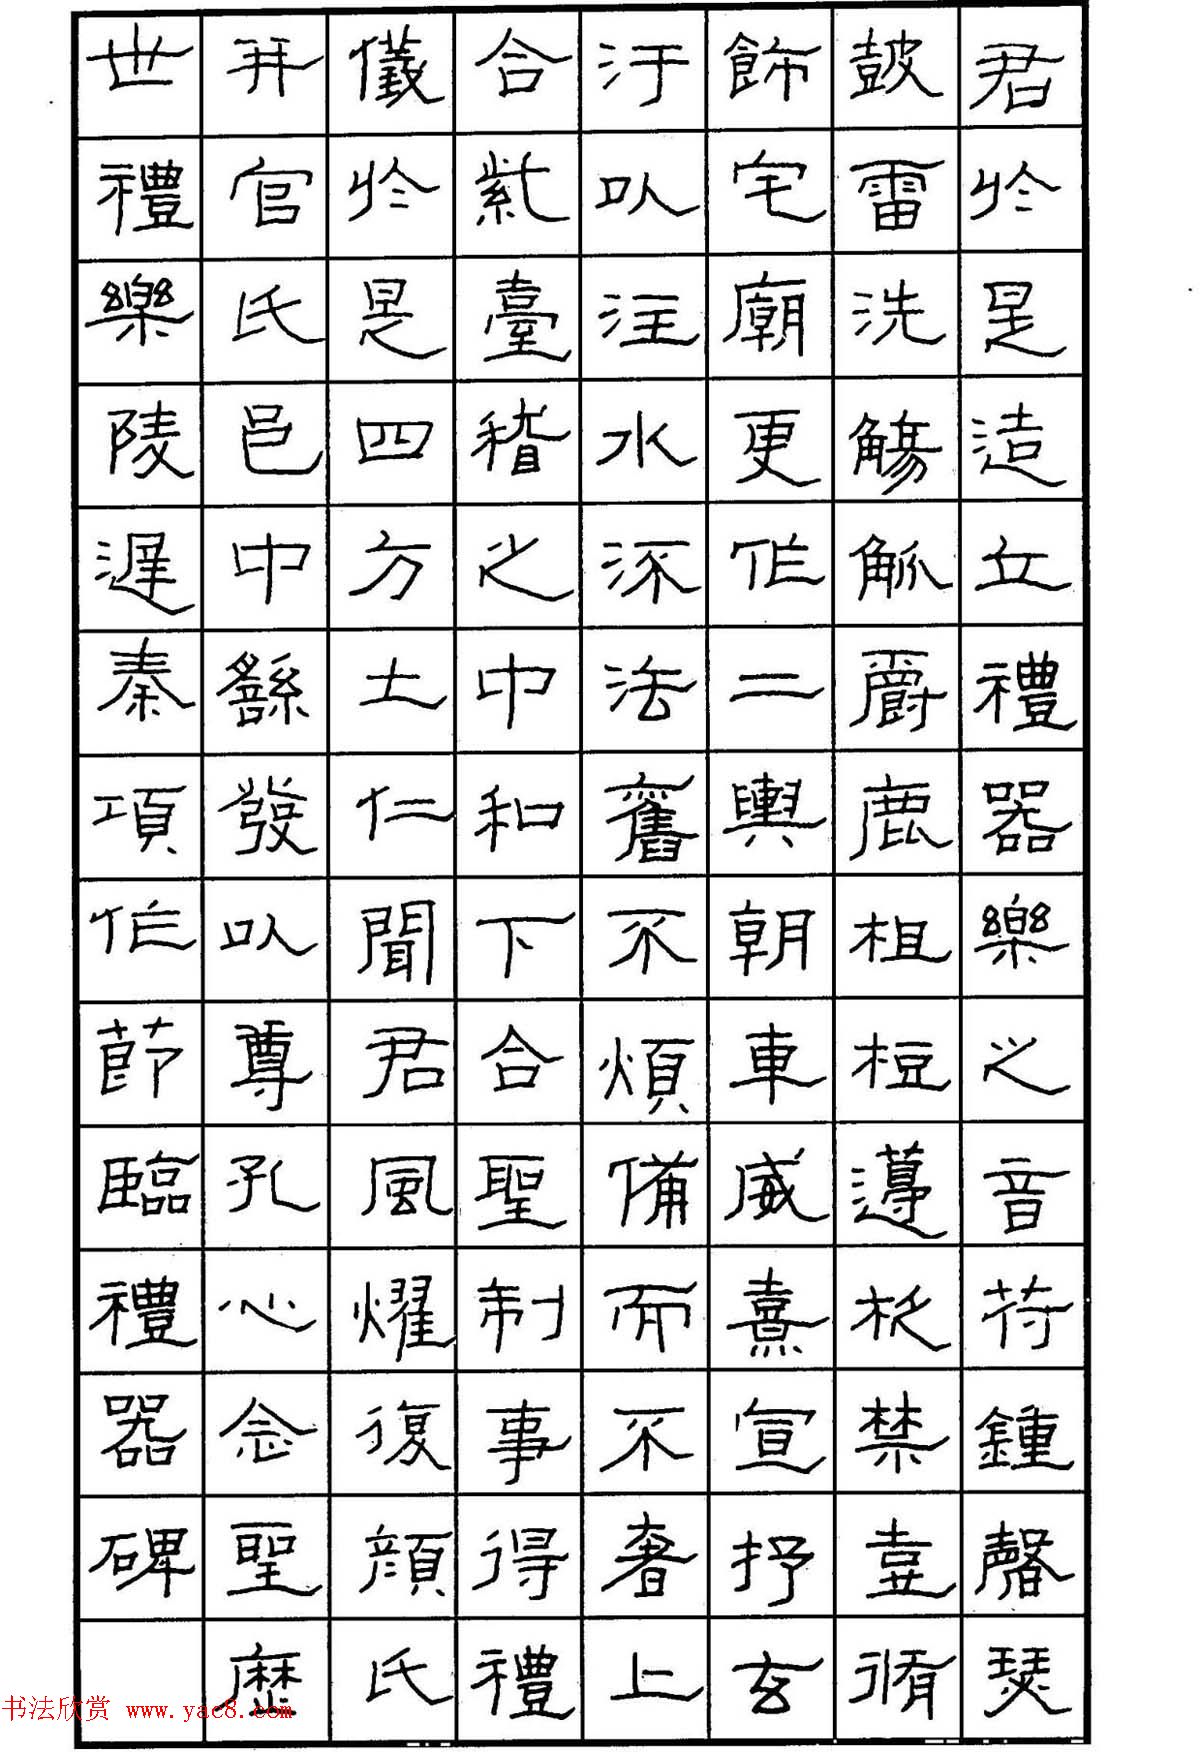 君於是造立禮器樂之音符鍾磬瑟
鼓雷洗觴觚爵鹿柤梪籩柉禁壺脩
飾宅廟更作二輿朝車威熹宣抒玄
汙以注水流法舊不煩備而不奢上
合紫臺稽之中和下合聖制事得禮
儀於是四方土仁聞君風燿復顏氏
并官氏邑中繇發以尊孔心念聖歷
世禮樂陵遲秦項作節臨禮器碑
书法欣赏 www.yac8.com